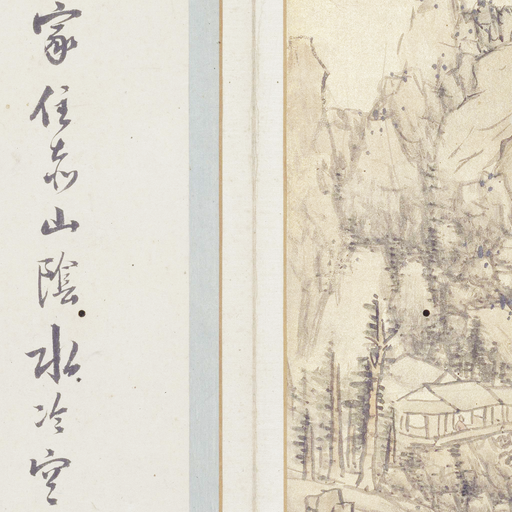 家住赤山陰水冷空